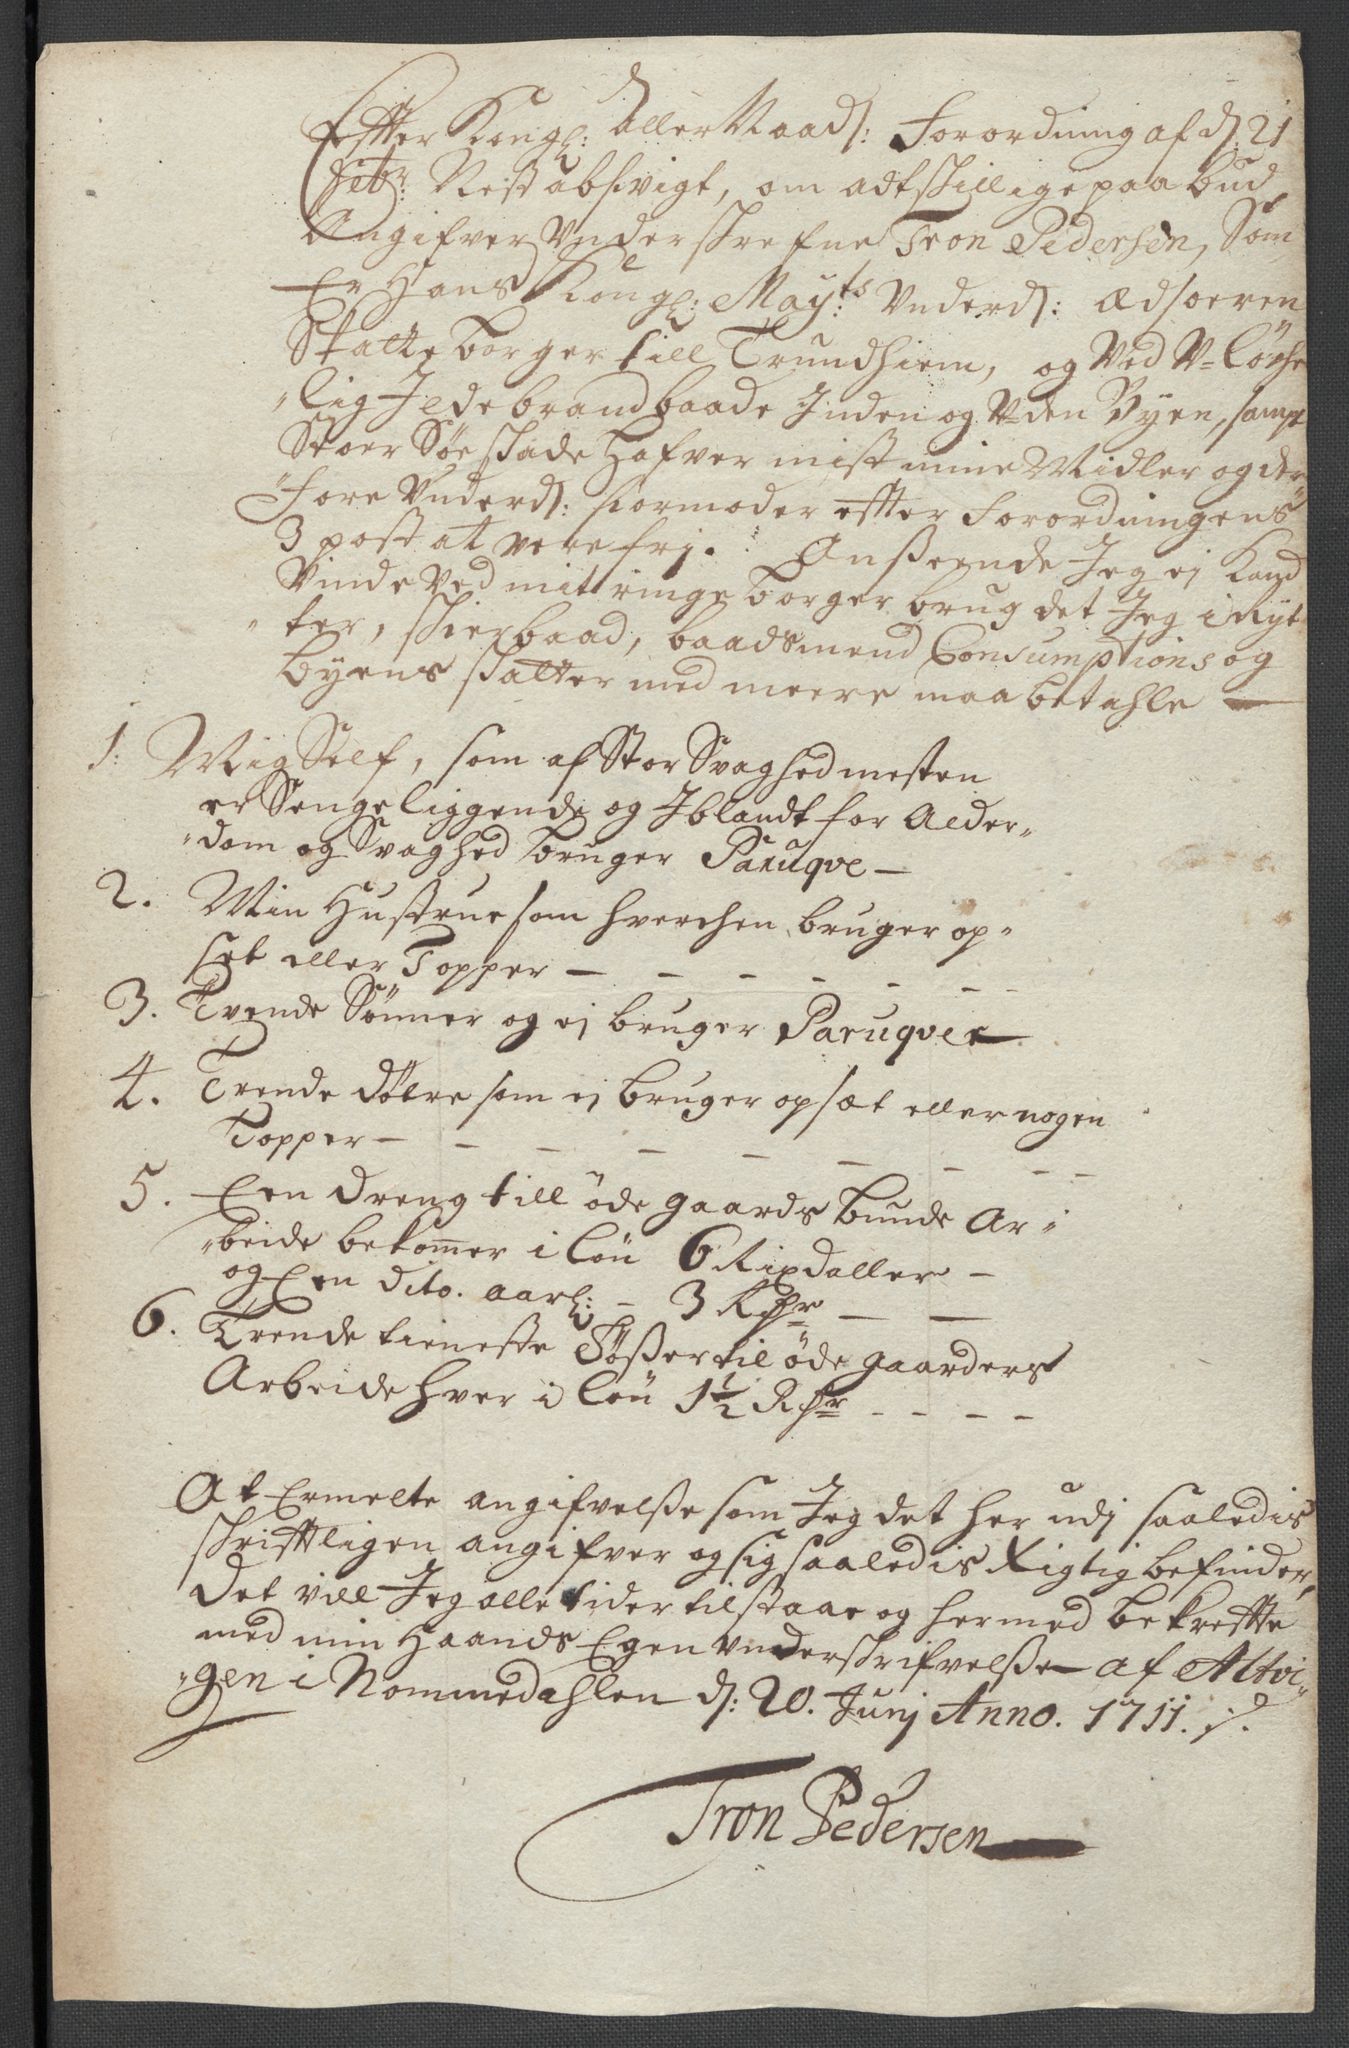 Effter Kongl: Aller Naads: Forordning af d: 21
Febr: Nest abhvigt, om adtskillige paa bud
Angifver Underskrefne Tron Pedersen, Som
Er Hans Kongl: May:ts Underd: Ædsoeren
Skatte borger till Trundhiem, og Ved U-
"lig Ildebrand baade Inden og Uden Byen, sampt
Stoer Søe skade hafver mist mine Midler og der
"fore Underd: formoder effter forordningens
3 post at vere frj. Anseende Jeg ej kand
Vinde Ved mit ringe borger brug det Jeg i Ryt
"ter, skierbaad, baadsmend Consumptions og
byens skatter med meere maa betahle —
1: Mig Self, som af Stor Svaghed mesten
er Senge liggende og Iblandt for Alder"
"dom og Svaghed bruger Paruqve —
2. Min Hustrue som hverchen bruger op"
set eller Topper — — — — — — —
3. Tvende Sønner og ej bruger Paruqver
4. Trende døtre som ej bruger opsæt eller nogen
Topper — — — — — — — — —
5. Een dreng till øde gaards bunde Ar"
"beide bekommer i løn 6 Rixdaller —
og Een dito. aarl: — 3 Rdr — —
6. Trende tieneste Tøßer til øde gaarders
Arbeide hver i løn 1½ Rdr - - - -
At Ermelte angifvelße som Jeg det her udj saaledis
skriftligen angifver og sig saaledis Rigtig befinder,
det vill Jeg alle tider tilstaae og hermed bekreffte
med min Haands Egen underskrifvelße af Altvi"
"gen i Nommedahlen d: 20. Junj Anno. 1711. ./.
Tron Pedersen